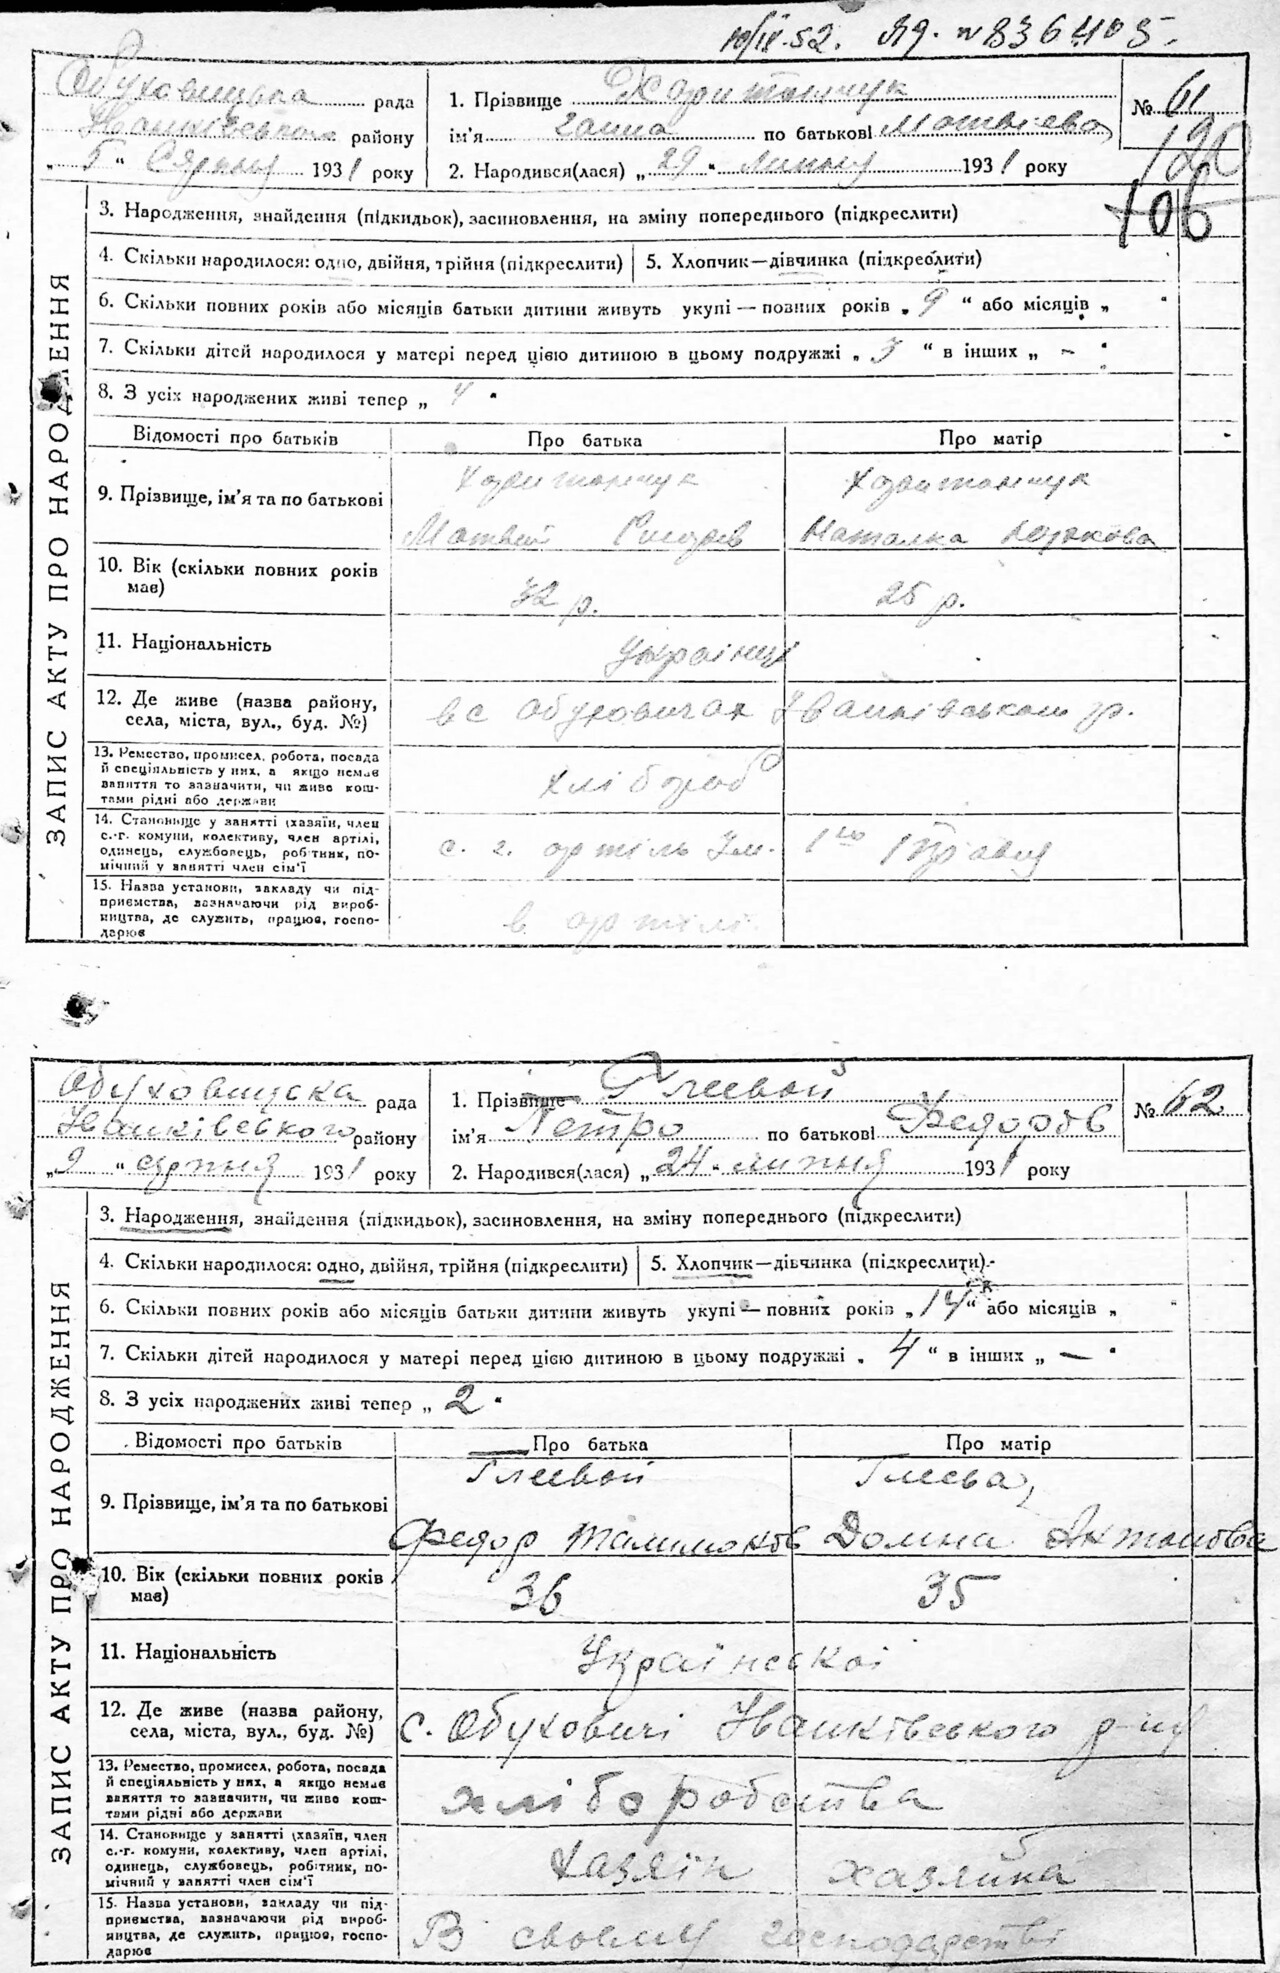 10/IX-52. ЯЯ. № 836405.
Обуховицька рада
Іванківського району
„ 5 “ Серпня 1931 року
1. Прізвище Ходитанчук
ім’я Ганна по батькові Матвієва
2. Народився(лася) „ 29 “ Липня 1931 року
№ 61
120
106
ЗАПИС АКТУ ПРО НАРОДЖЕННЯ
3. Народження, знайдення (підкидьок), засиновлення, на зміну попереднього (підкреслити)
4. Скільки народилося: одно, двійня, трійня (підкреслити) 5. Хлопчик—дівчинка (підкреслити)
6. Скільки повних років або місяців батьки дитини живуть укупі — повних років „ 9 “ або місяців „ “
7. Скільки дітей народилося у матері перед цією дитиною в цьому подружжі „ 3 “ в інших „ – “
8. З усіх народжених живі тепер „ 4 “
Відомості про батьків Про батька Про матір
9. Прізвище, ім’я та по батькові
Ходитанчук Ходитанчук
Матвій Сидорів Наталка
10. Вік (скільки повних років має)
32 р. 25 р.
11. Національність українці
12. Де живе (назва району, села, міста, вул., буд. №)
в с Обуховичах Іванківського р.
13. Ремество, промисел, робота, посада
й спеціяльність у них, а якщо немає
заняття то зазначити, чи живе кош-
тами рідні або держави
хлібороб
14. Становище у занятті (хазяїн, член
с.-г. комуни, колективу, член артілі,
одинець, службовець, робітник, по-
мічний у занятті член сім’ї
с. г. артіль Ім. 1го Травня
15. Назва установи, закладу чи під-
приємства, зазначаючи рід вироб-
ництва, де служить, працює, госпо-
дарює
в артілі
Обуховицька рада
Іванківського району
„ 9 “ серпня 1931 року
1. Прізвище Глевой
ім’я Петро по батькові Федорів
2. Народився(лася) „ 24 “ липня 1931 року
№ 62
ЗАПИС АКТУ ПРО НАРОДЖЕННЯ
3. Народження, знайдення (підкидьок), засиновлення, на зміну попереднього (підкреслити)
4. Скільки народилося: одно, двійня, трійня (підкреслити) 5. Хлопчик—дівчинка (підкреслити)
6. Скільки повних років або місяців батьки дитини живуть укупі — повних років „ 14 “ або місяців „ “
7. Скільки дітей народилося у матері перед цією дитиною в цьому подружжі „ 4 “ в інших „ — “
8. З усіх народжених живі тепер „ 2 “
Відомості про батьків Про батька Про матір
9. Прізвище, ім’я та по батькові
Глевой Глева,
Федор Домна Антонова
10. Вік (скільки повних років має)
36 35
11. Національність Українскі
12. Де живе (назва району, села, міста, вул., буд. №)
с. Обуховичі Іванківського р-ну
13. Ремество, промисел, робота, посада
й спеціяльність у них, а якщо немає
заняття то зазначити, чи живе кош-
тами рідні або держави
хліборобства
14. Становище у занятті (хазяїн, член
с.-г. комуни, колективу, член артілі,
одинець, службовець, робітник, по-
мічний у занятті член сім’ї
Хазяїн хазяйка
15. Назва установи, закладу чи під-
приємства, зазначаючи рід вироб-
ництва, де служить, працює, госпо-
дарює
В своєму господарстві